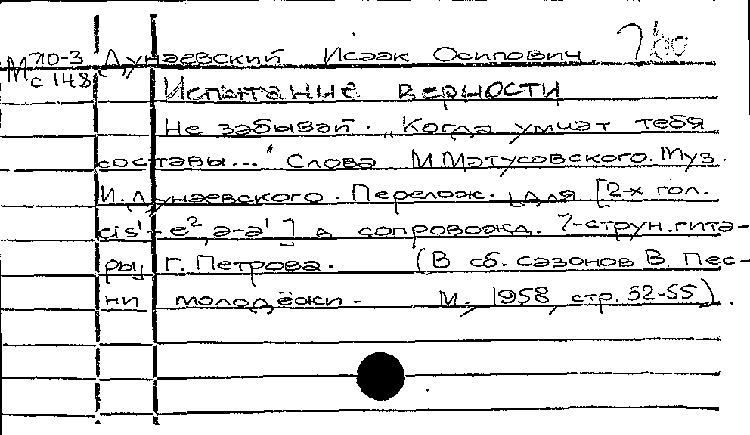 М 710-3 Дунаевский Исаак Осипович.
с 148 Испытание верности
Не забывай. „Когда умчат тебя
составы..." Слова М.Матусовского. Муз.
И.Дунаевского. Перелож. для [2-х гол.
cis¹-e², a-a¹] в сопровожд. 7-струн. гита-
ры Г. Петрова. (В сб. Сазонов В. Пес-
ни молодёжи. М., 1958, стр. 52-55).